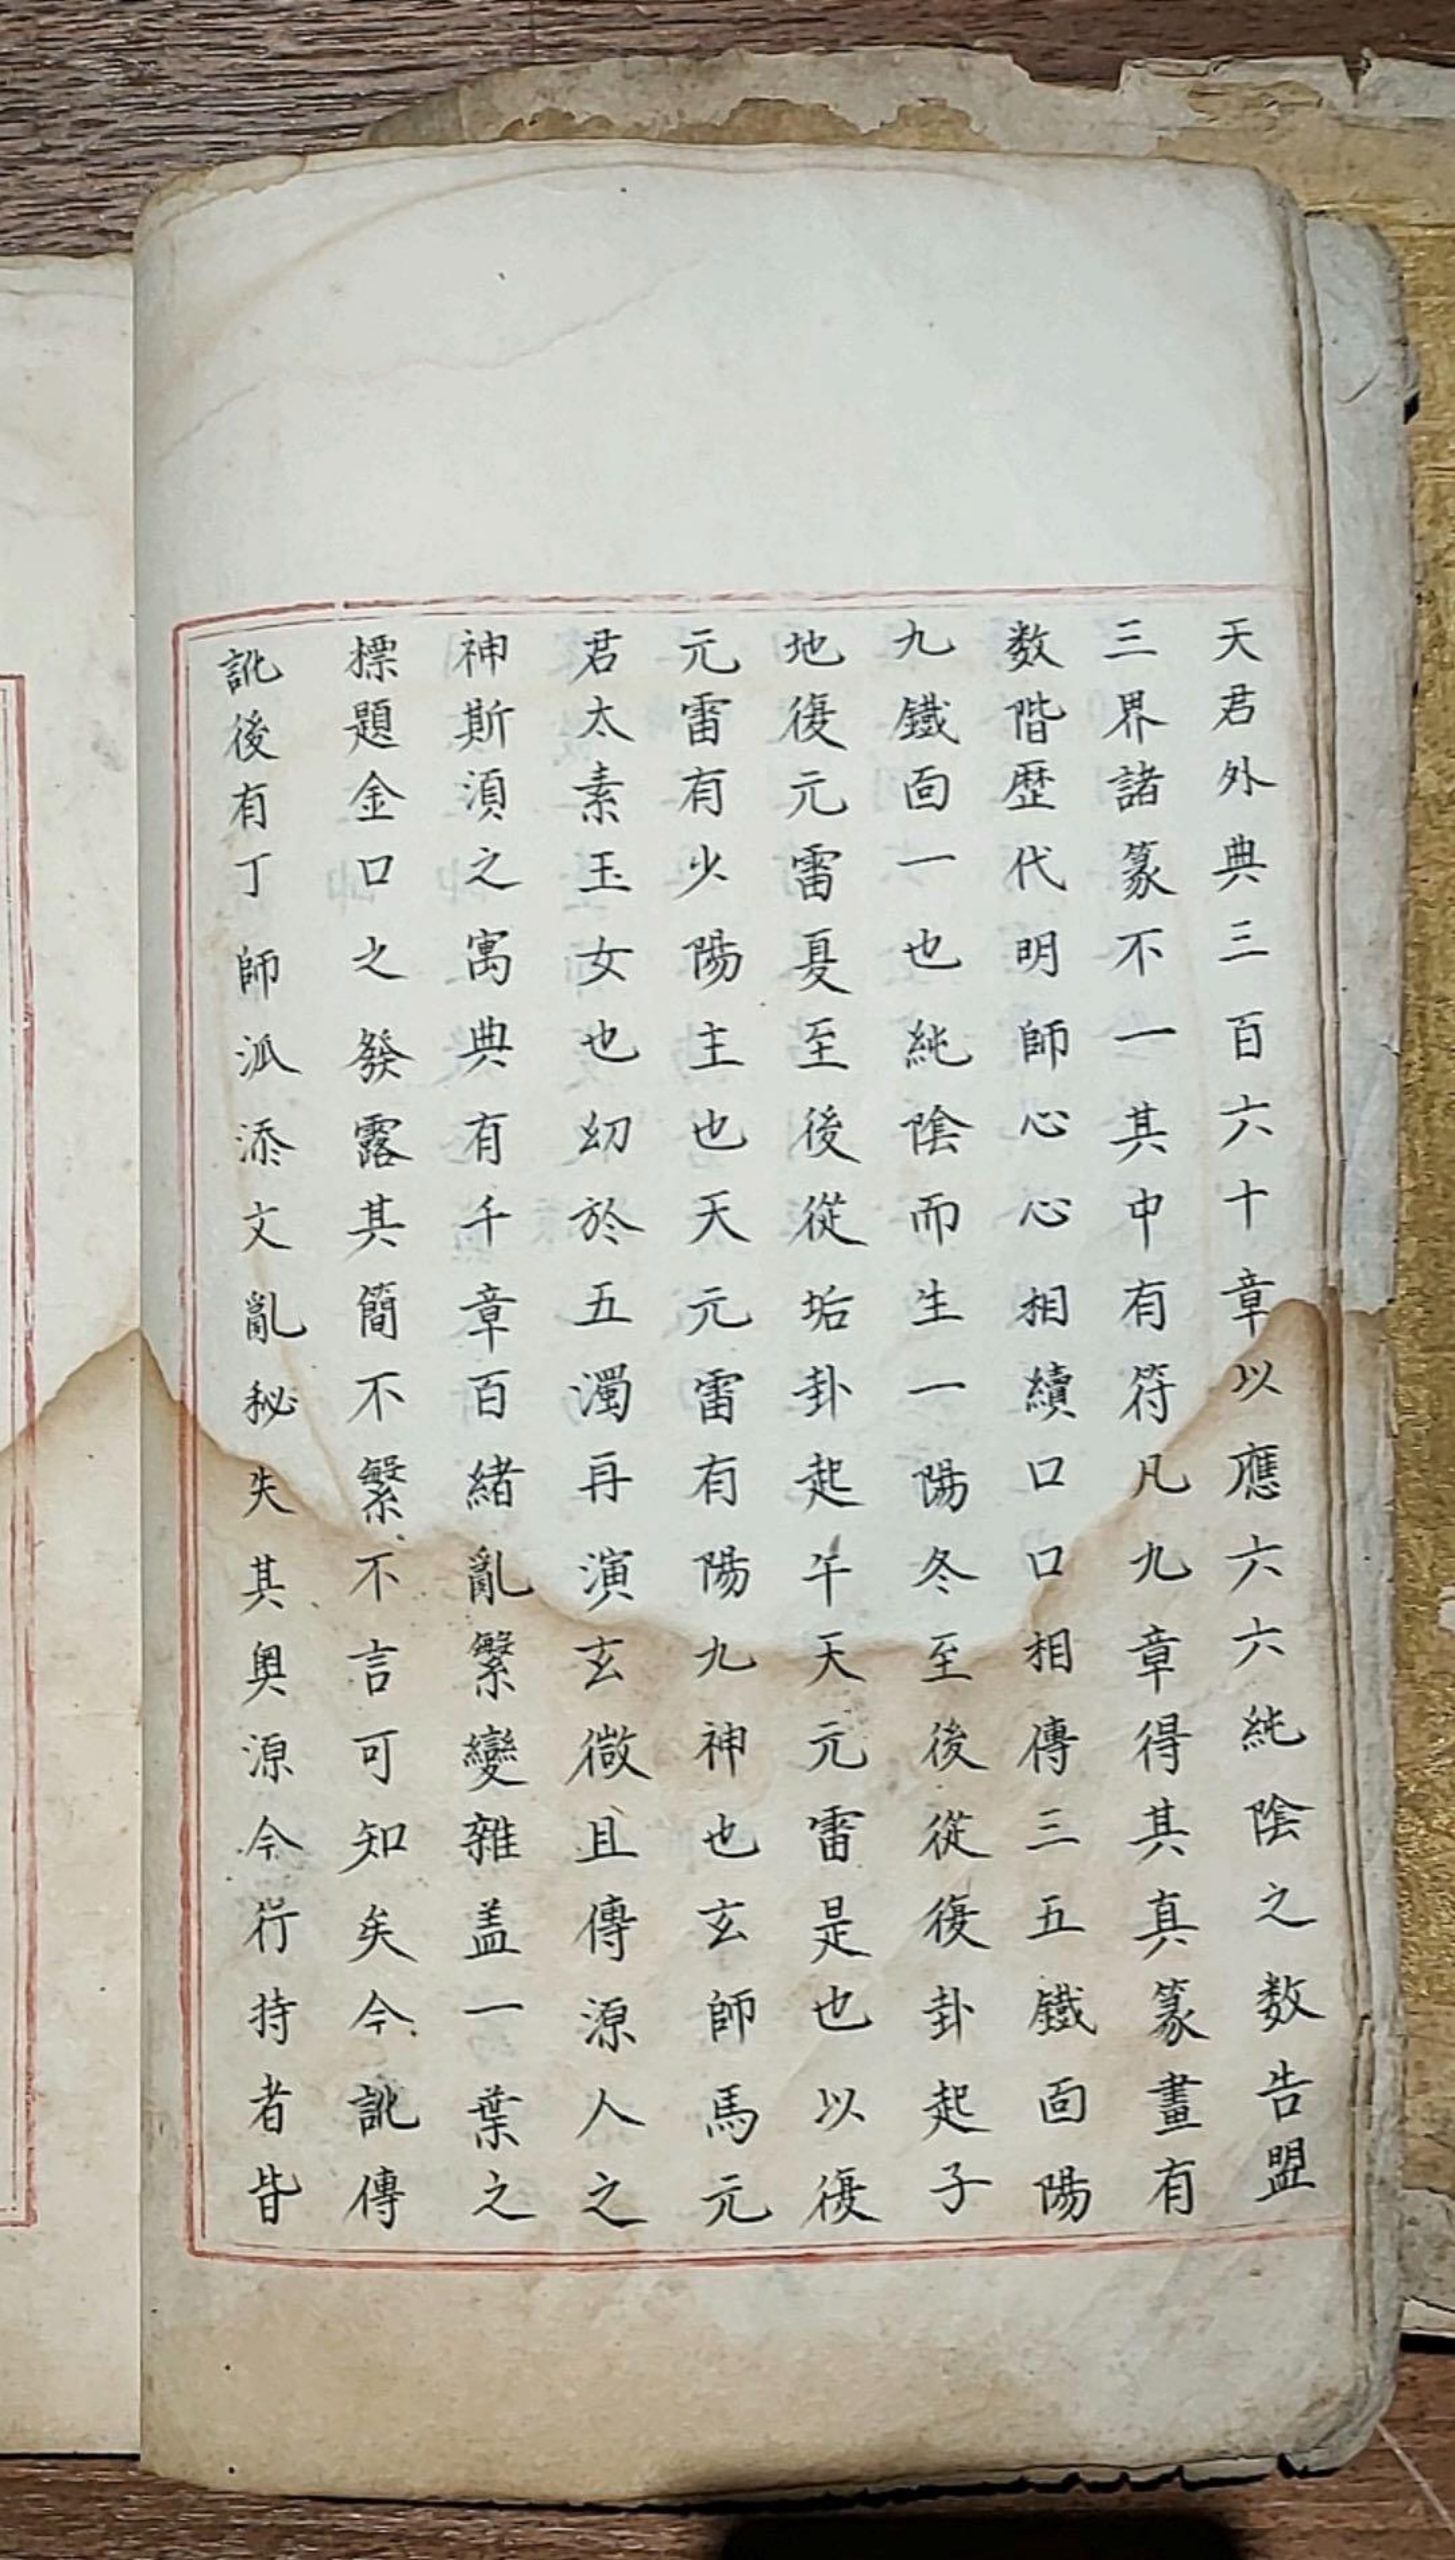 天君外典三百六十章以應六六純陰之数告盟
三界諸篆不一其中有符凡九章得其真篆畫有
数階歷代明師心心相續口口相傳三五鐵面陽
九鐵面一也純陰而生一陽冬至後從復卦起子
地復元雷夏至後從垢卦起午天元雷是也以復
元雷有少陽主也天元雷有陽九神也玄師馬元
君太素玉女也幼於五濁再演玄微且傳源人之
神斯湏之寓典有千章百緒亂繁變雜盖一葉之
摽題金口之發露其簡不繁不言可知矣今訛傳
訛後有丁師派添文亂秘失其奧源今行持者皆